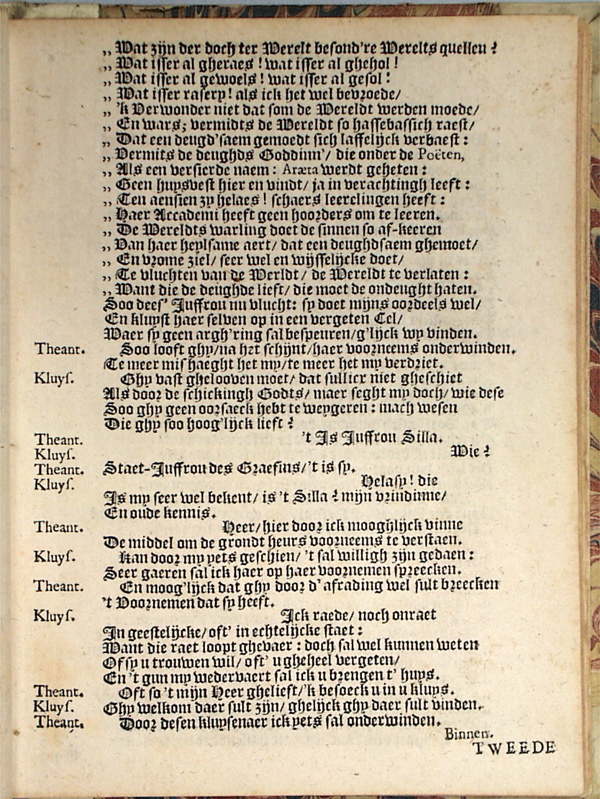 „ Wat zijn der doch ter Werelt besond're Werelts quellen?
„ Wat isser al gheraes! wat isser al ghehol!
„ Wat isser al gewoels! wat isser al gesol!
„ Wat isser rasery! als ick het wel bevroede/
„ 'k Verwonder niet dat som de Wereldt werden moede/
„ En wars; vermidts de Wereldt so hassebassich raest/
„ Dat een deugd'saem gemoedt sich lasselijck verbaest:
„ Vermits de deughds Goddinn'/ die onder de Poëten,
„ Als een versierde naem: Aræta werdt geheten:
„ Geen huysvest hier en vindt/ ja in verachtingh leeft:
„ Ten aensien zy helaes! schaers leerelingen heeft:
„ Haer Accademi heeft geen hoorders om te leeren.
„ De Wereldts warling doet de sinnen so af-keeren
„ Van haer heylsame aert/ dat een deughdsaem ghemoet/
„ En vrome ziel/ seer wel en wijsselijcke doet/
„ Te vluchten van de Werldt/ de Wereldt te verlaten:
„ Want die de deughde lieft/ die moet de ondeught haten.
Soo dees' Juffrou nu vlucht: sy doet mijns oordeels wel/
En kluyst haer selven op in een vergeten Cel/
Waer sy geen argh'ring sal bespeuren/ g'lijck wy vinden.
Theant. Soo looft ghy/ na het schijnt/ haer voorneems onderwinden.
Te meer mishaeght het my/ te meer het my verdriet.
Kluys. Ghy vast ghelooven moet/ dat sullicx niet gheschiet
Als door de schickingh Godts/ maer seght my doch/ wie dese
Soo ghy geen oorsaeck hebt te weygeren: mach wesen
Die ghy soo hoog'lijck lieft?
Theant. 't Is Juffrou Silla.
Kluys. Wie?
Theant. Staet-Juffrou des Graefins/ 't is sy.
Kluys. Helasy! die
Is my seer wel bekent/ is 't Silla? mijn vrindinne/
En oude kennis.
Theant. Heer/ hier door ick mooghlijck vinne
De middel om de grondt heurs voorneems te verstaen.
Kluys. Kan door my yets geschien/ 't sal willigh zijn gedaen:
Seer gaeren sal ick haer op haer voornemen spreecken.
Theant. En moog'lijck dat ghy door d'afrading wel sult breecken
't Voornemen dat sy heeft.
Kluys. Ick raede/ noch onraet
In geestelijcke/ oft' in echtelijcke staet:
Want die raet loopt ghevaer: doch sal wel kunnen weten
Of sy u trouwen wil/ oft' u gheheel vergeten/
En 't gun my wedervaert sal ick u brengen t' huys.
Theant. Oft so 't mijn Heer ghelieft/ 'k besoeck u in u kluys.
Kluys. Ghy welkom daer sult zijn/ ghelijck ghy daer sult vinden.
Theant. Door desen kluysenaer ick yets sal onderwinden.
Binnen.
TWEEDE